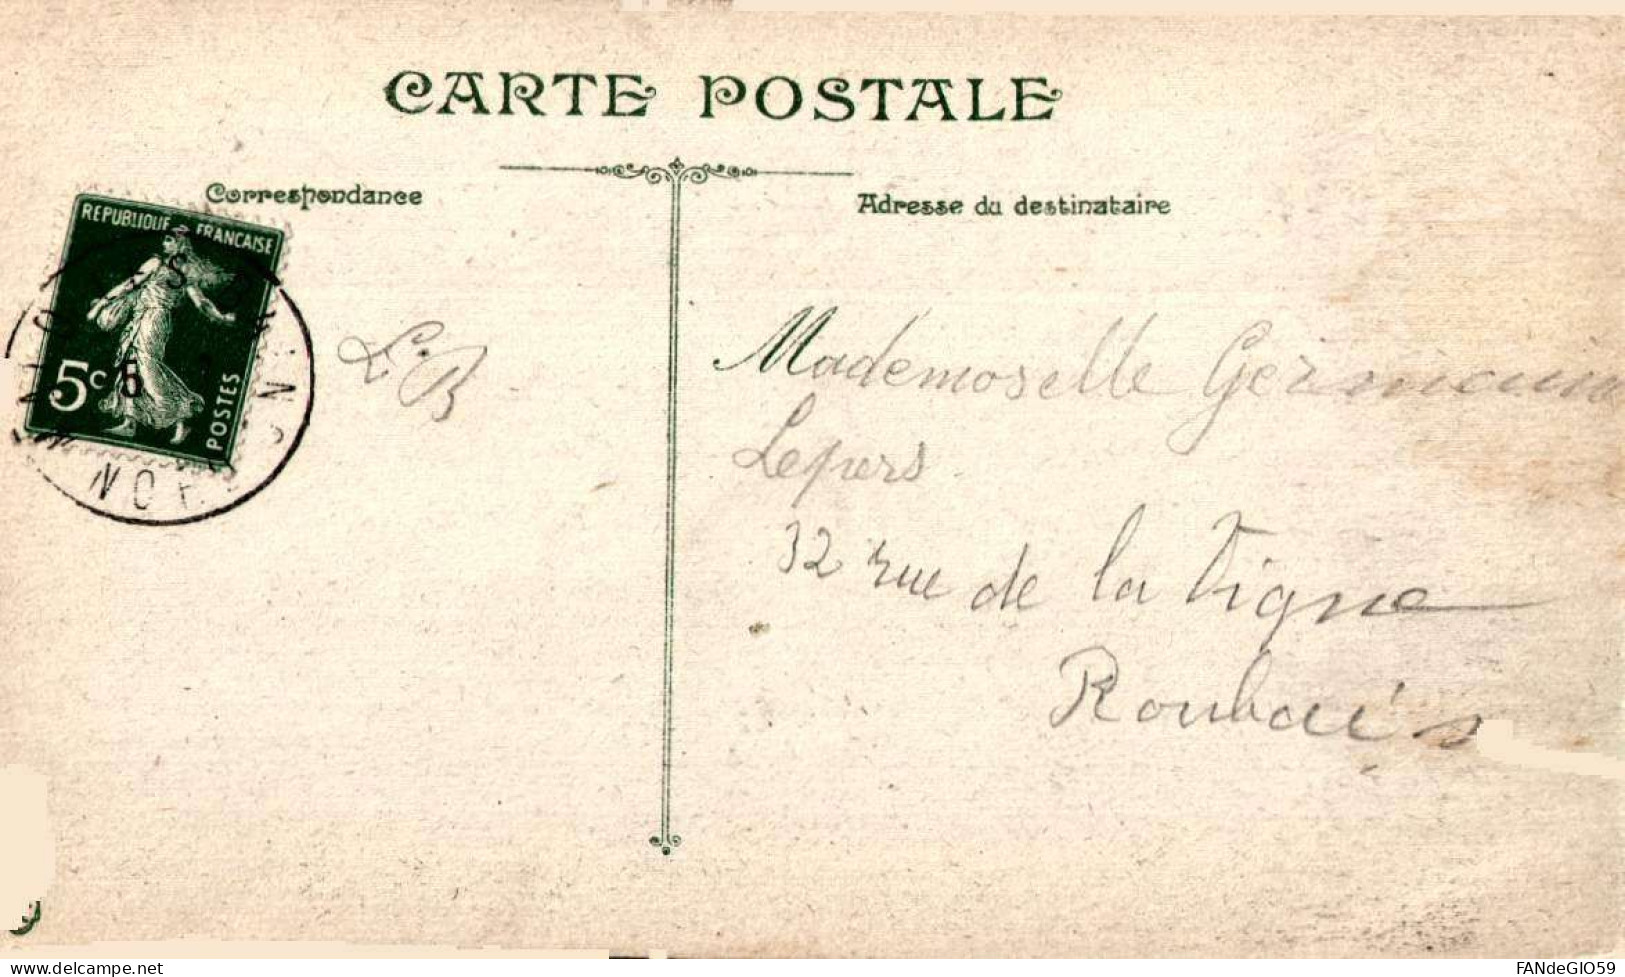 CARTE POSTALE
Correspondance
Adresse du destinataire
REPUBLIQUE FRANCAISE
5c
POSTES
5
NORD
L. B
Mademoiselle Germaine
Lepers
32 rue de la Vigne
Roubais
www.delcampe.net
FANdeGIO59